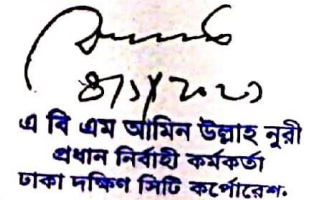 এ বি এম আমিন উল্লাহ নূরী
প্রধান নির্বাহী কর্মকর্তা
ঢাকা দক্ষিণ সিটি কর্পোরেশন।